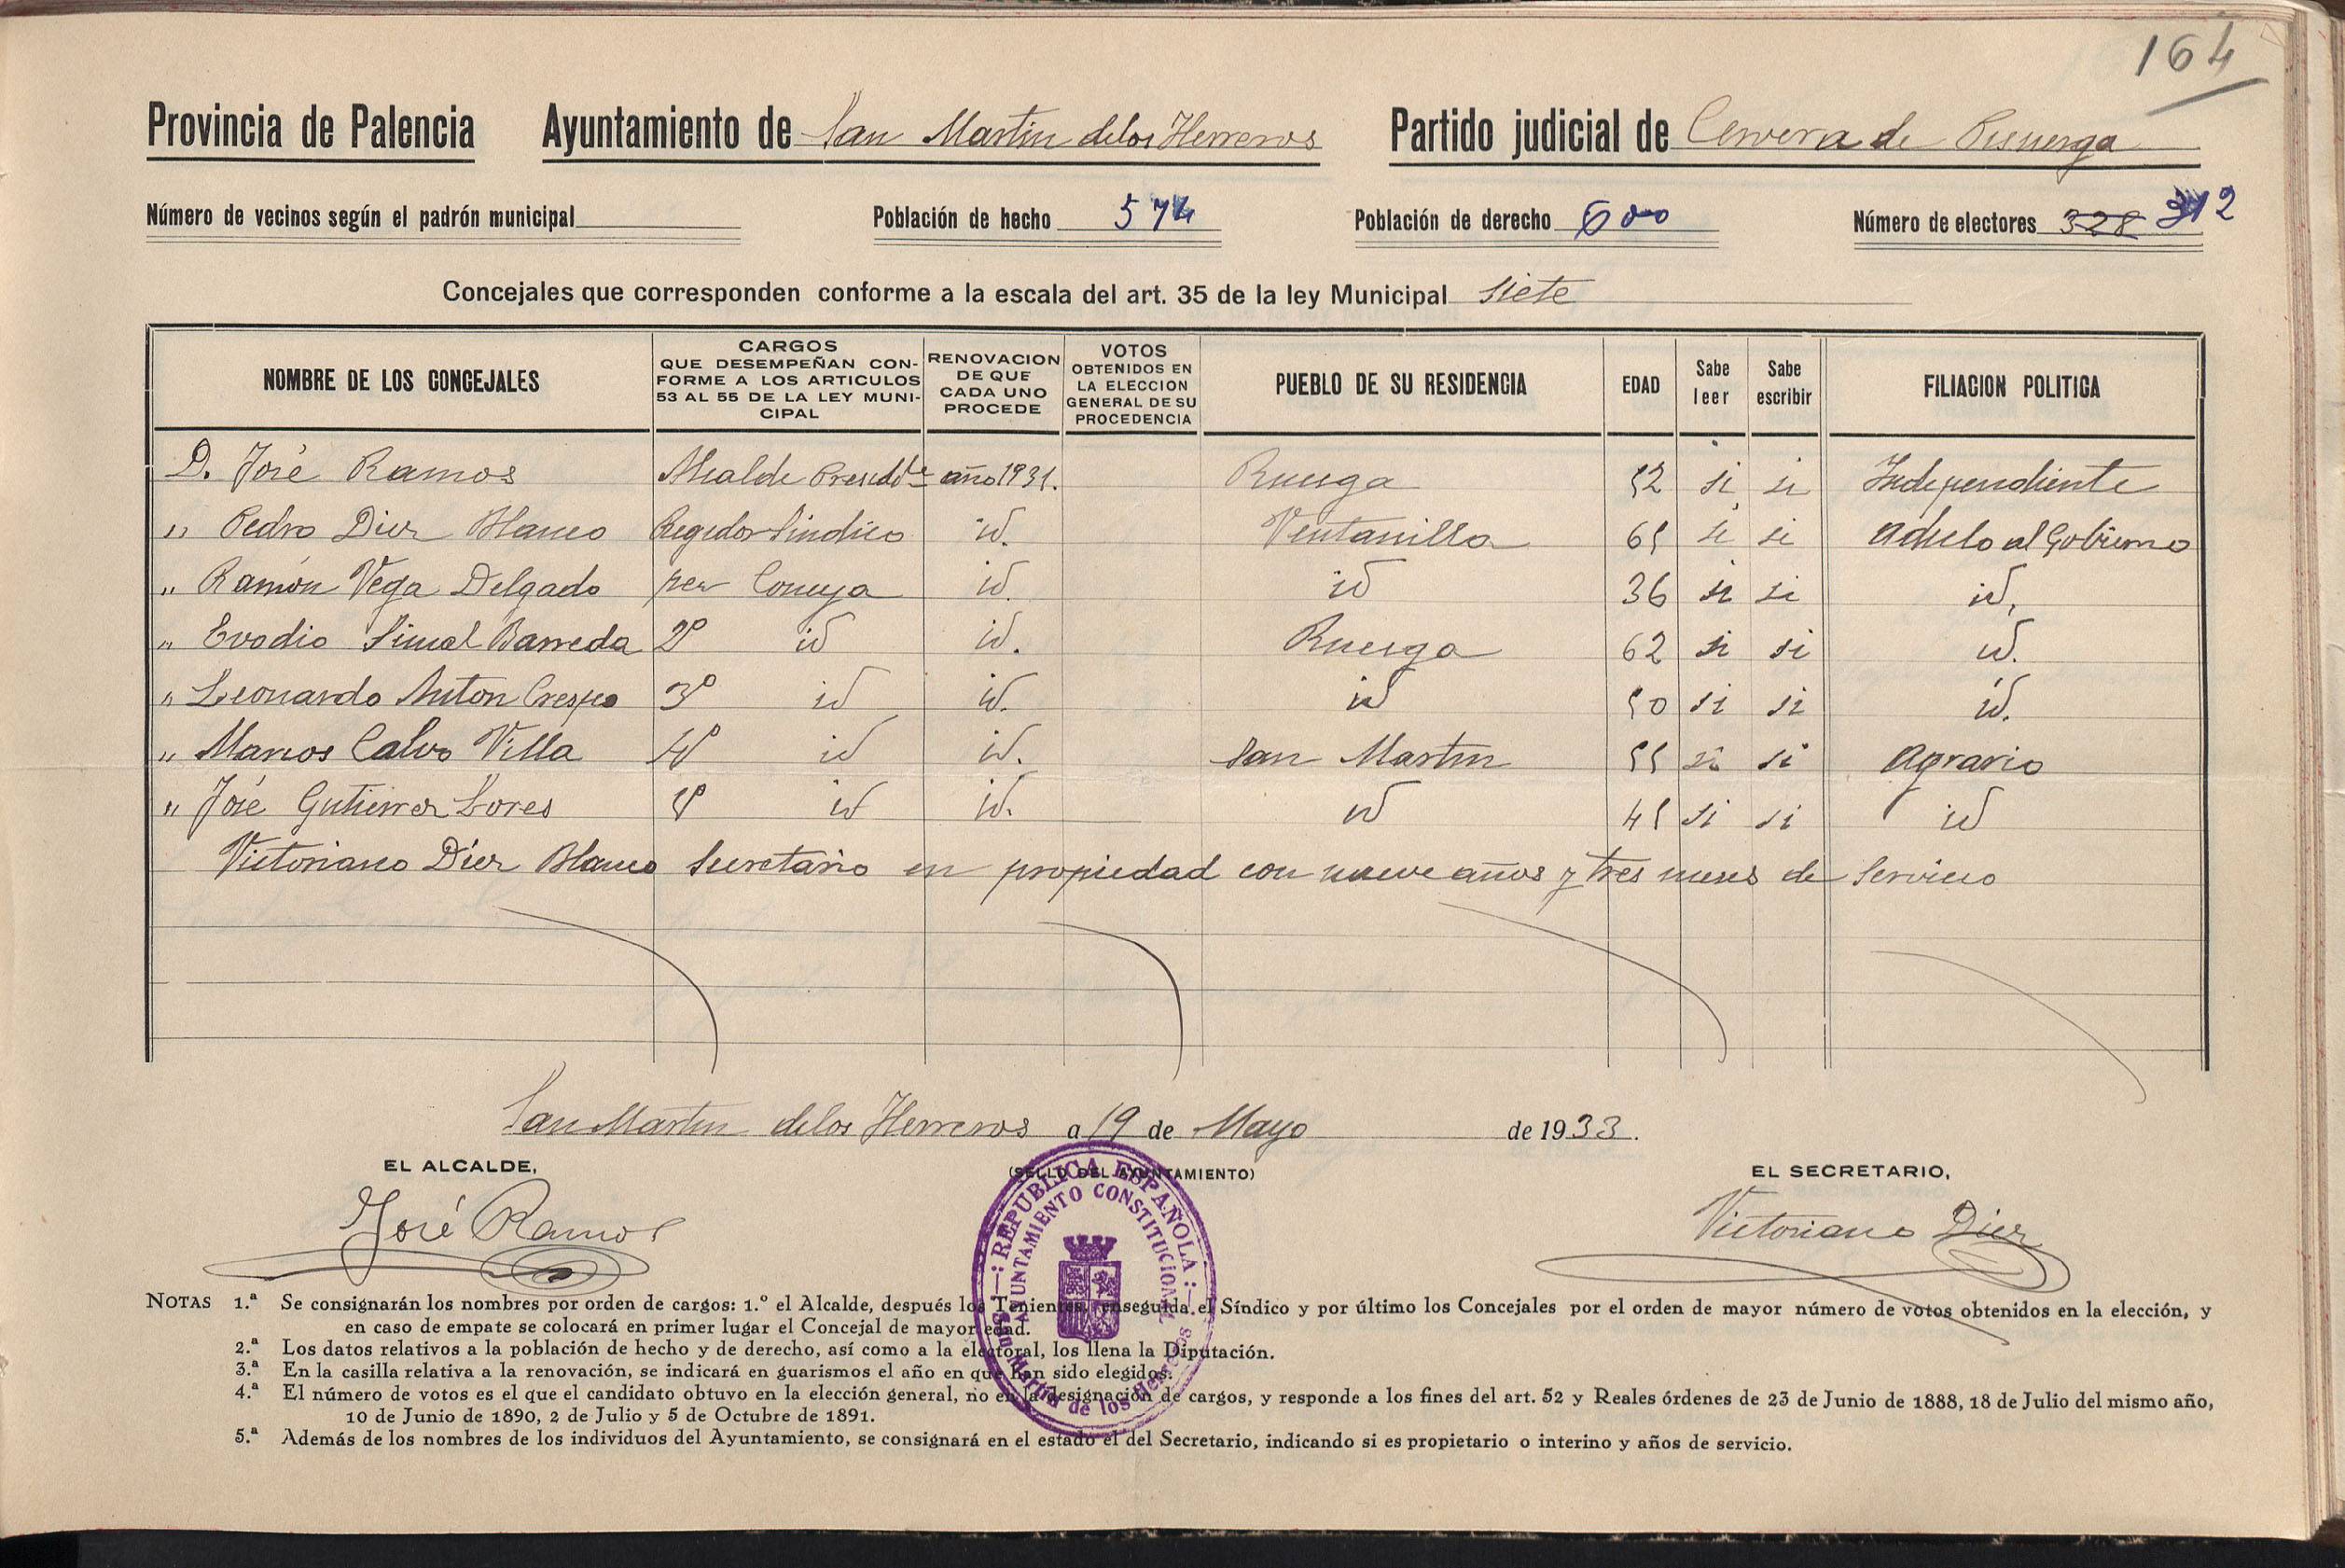 164
Provincia de Palencia Ayuntamiento de San Martin de los Herreros Partido judicial de Cervera de Pisuerga
Número de vecinos según el padrón municipal Población de hecho 574 Población de derecho 600 Número de electores 328 312
Concejales que corresponden conforme a la escala del art. 35 de la ley Municipal siete
NOMBRE DE LOS CONCEJALES CARGOS QUE DESEMPEÑAN CONFORME A LOS ARTICULOS 53 AL 55 DE LA LEY MUNICIPAL RENOVACION DE QUE CADA UNO PROCEDE VOTOS OBTENIDOS EN LA ELECCION GENERAL DE SU PROCEDENCIA PUEBLO DE SU RESIDENCIA EDAD Sabe leer Sabe escribir FILIACION POLITICA
D. José Ramos Alcalde Presidte año 1931. Ruesga 52 si si Independiente
" Pedro Diez Blanco Regidor Sindico id. Ventanilla 65 si si Adicto al Gobierno
" Ramón Vega Delgado per id. id 36 si si id,
" Evodio Simal Barreda 2º id id. Ruesga 62 si si id.
" Leonardo Anton Crespo 3º id id. id 50 si si id.
" Marcos Calvo Villa 4º id id. San Martin 55 si si Agrario
" José Gutierrez Lores 5º id id. id 45 si si id
Victoriano Díez Blanco Secretario en propiedad con nueve años y tres meses de servicio
San Martin de los Herreros a 19 de Mayo de 1933.
EL ALCALDE, (SELLO DEL AYUNTAMIENTO) EL SECRETARIO,
José Ramos Victoriano Diez
REPUBLICA ESPAÑOLA
AYUNTAMIENTO CONSTITUCIONAL
San Martin de los Herreros
NOTAS 1.ª Se consignarán los nombres por orden de cargos: 1.º el Alcalde, después los Tenientes, enseguida el Síndico y por último los Concejales por el orden de mayor número de votos obtenidos en la elección, y
en caso de empate se colocará en primer lugar el Concejal de mayor edad.
2.ª Los datos relativos a la población de hecho y de derecho, así como a la electoral, los llena la Diputación.
3.ª En la casilla relativa a la renovación, se indicará en guarismos el año en que han sido elegidos.
4.ª El número de votos es el que el candidato obtuvo en la elección general, no en la designación de cargos, y responde a los fines del art. 52 y Reales órdenes de 23 de Junio de 1888, 18 de Julio del mismo año,
10 de Junio de 1890, 2 de Julio y 5 de Octubre de 1891.
5.ª Además de los nombres de los individuos del Ayuntamiento, se consignará en el estado el del Secretario, indicando si es propietario o interino y años de servicio.